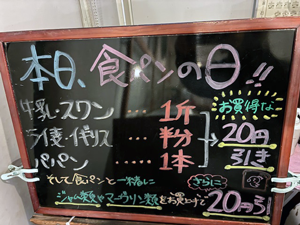 本日、食パンの日!!
お買得な
牛乳・スワン・・・・1斤
ライ麦・イギリス・・・粉
パパン・・・・・1本
20円引き
そして食パンと一緒に さらに
ジャム類やマーガリン類をお買上げで20円引